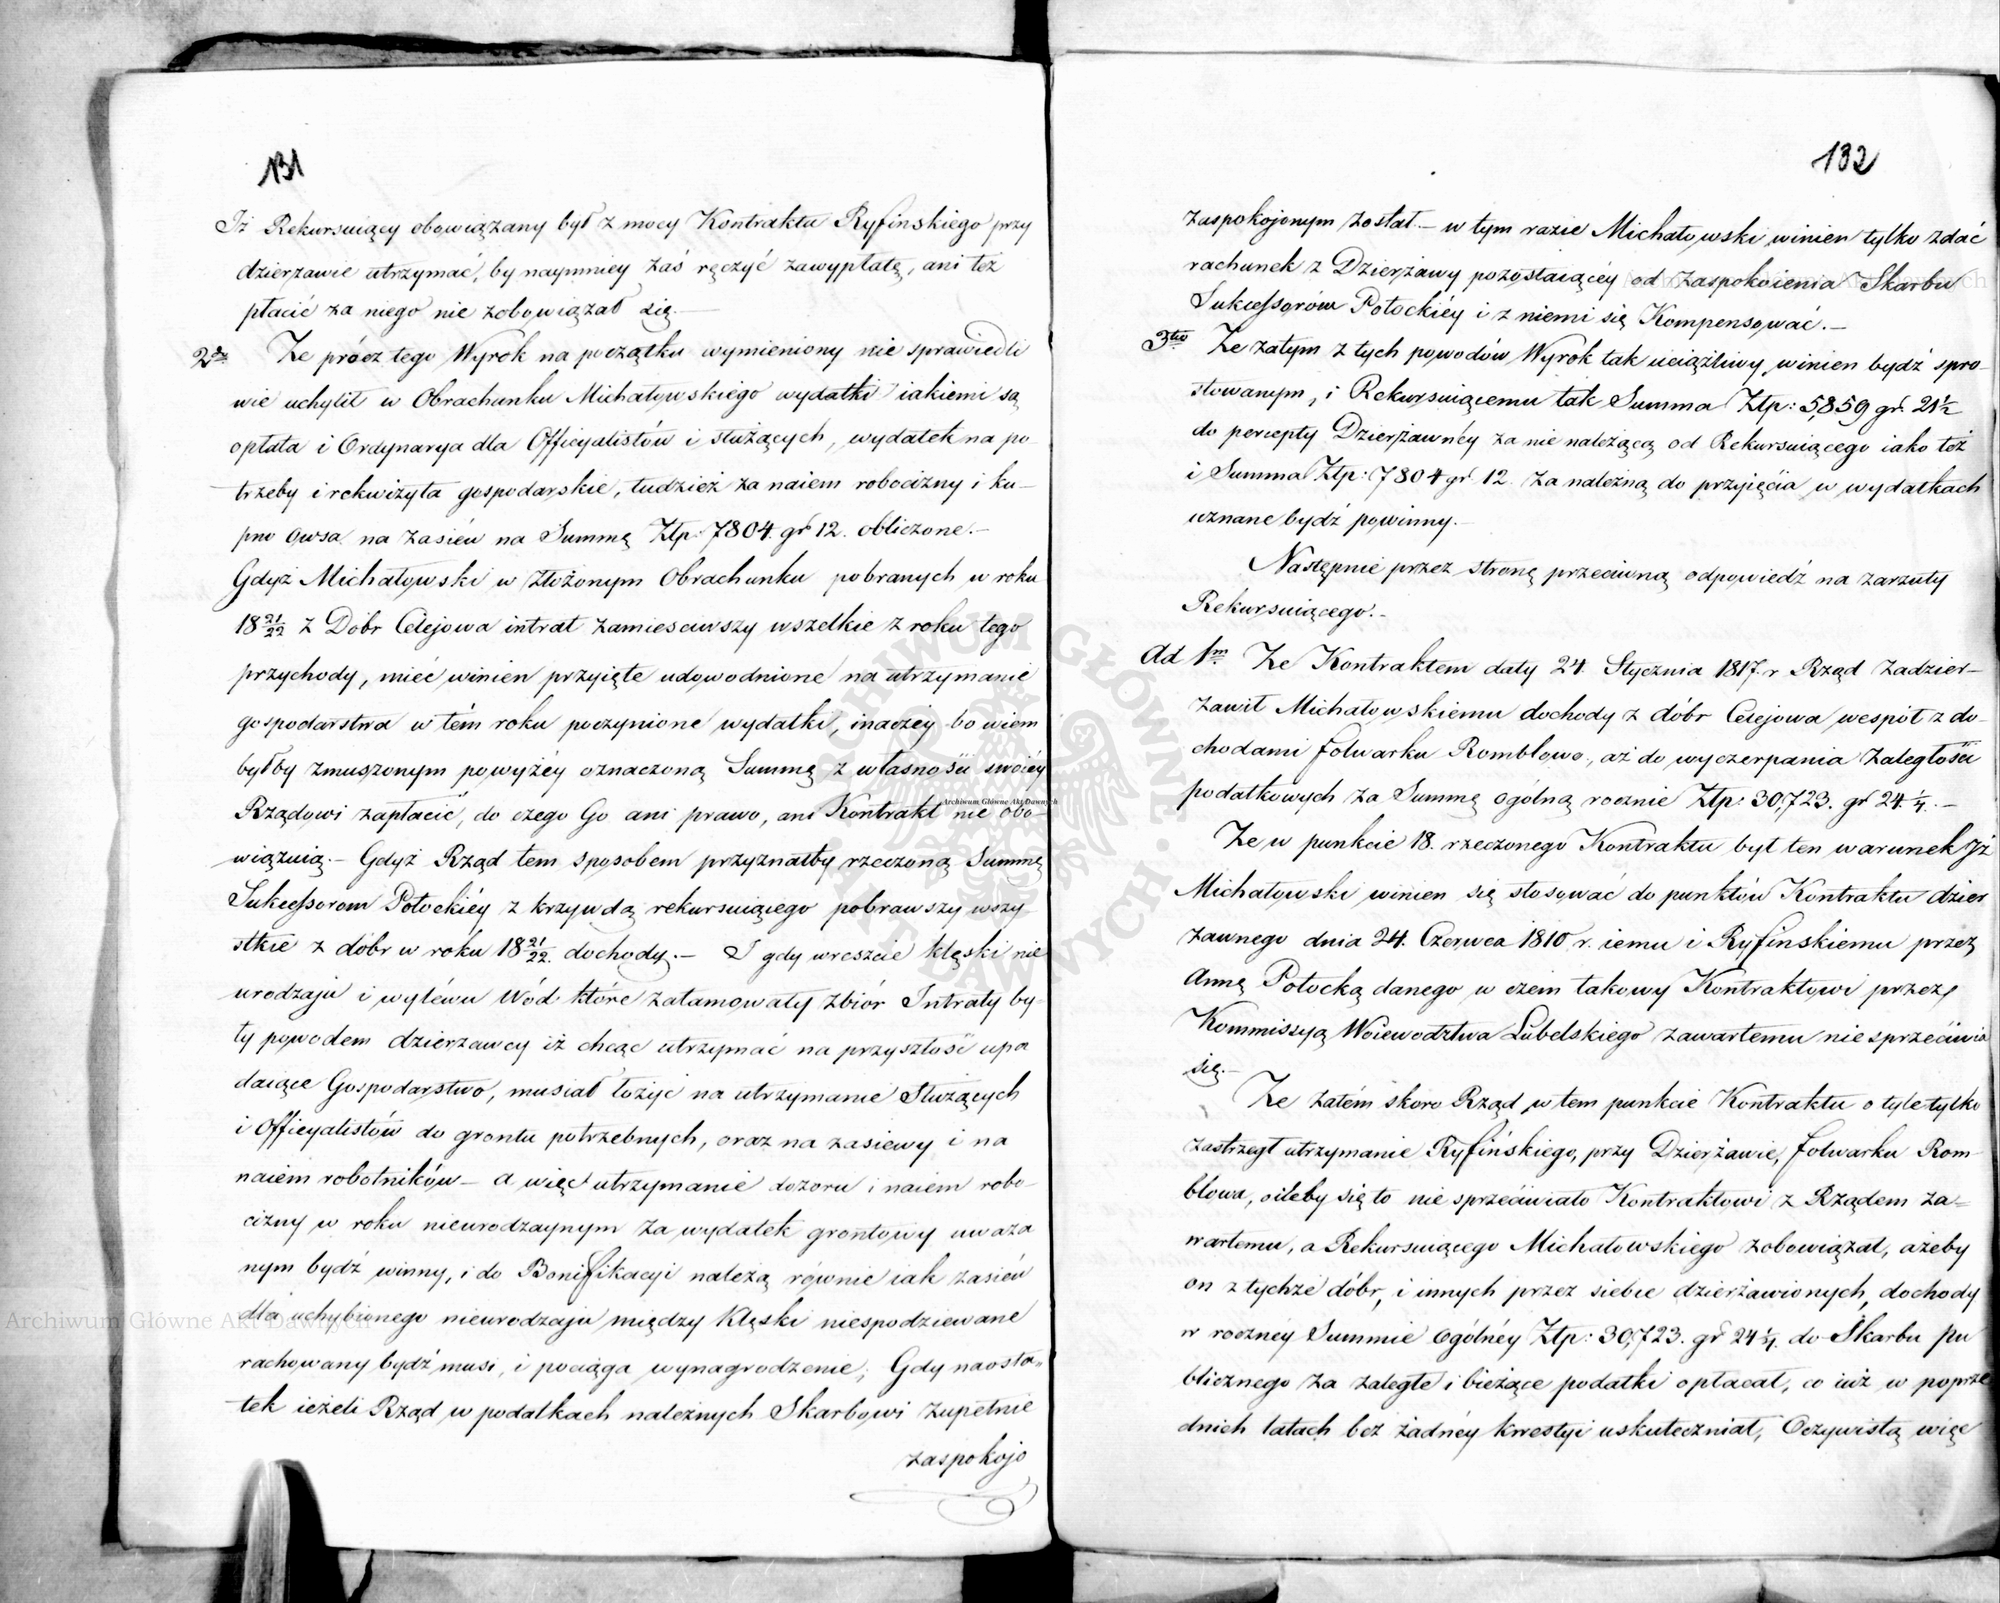 131
Iż Rekursuiący obowiązany był z mocy Kontraktu Ryfinskiego przy
dzierzawie utrzymać, by naymniey zaś ręczyć zawypłatę, ani też
płacić za niego nie zobowiązał się. —
2do Ze prócz tego Wyrok na początku wymieniony nie sprawiedli
wie uchylił w Obrachunku Michałowskiego wydatki iakiemi są
opłata i Ordynarya dla Officyalistów i służących, wydatek na po-
trzeby i rekwizyta gospodarskie, tudzież za naiem robocizny i ku-
pno owsa na zasiew na Summę Złp: 7804. gr 12. obliczone. —
Gdyż Michałowski w złożonym Obrachunku pobranych w roku
18 21/22 z Dóbr Celejowa intrat zamieściwszy wszelkie z roku tego
przychody, mieć winien przyięte udowodnione na utrzymanie
gospodarstwa w tém roku poczynione wydatki, inaczéy bowiem
byłby zmuszonym powyżéy oznaczoną Summę z własności swoiéy
Rządowi zapłacić, do czego Go ani prawo, ani Kontrakt nie obo-
wiązuią. — Gdyż Rząd tem sposobem przyznałby rzeczoną Summę
Sukcessorom Potockiéy z krzywdą rekursuiącego pobrawszy wszy
stkie z dóbr w roku 18 21/22. dochody. — I gdy wreszcie klęski nie
urodzaju i wyléwu Wód które zatamowały zbiór Intraty by-
ły powodem dzierzawcy iż chcąc utrzymać na przyszłość upa
daiące Gospodarstwo, musiał łożyć na utrzymanie Służących
i Officyalistów do gruntu potrzebnych, oraz na zasiewy i na
naiem robotników — a więc utrzymanie dozoru i naiem robo-
cizny w roku nieurodzaynym za wydatek grontowy uważa
nym bydź winny, i do Bonifikacyi należą równie iak zasiew
dla uchybionego nieurodzaju między Klęski niespodziewane
rachowany bydź musi, i pociąga wynagrodzenie; Gdy naosta-
tek ieżeli Rząd w podatkach należnych Skarbowi zupełnie
zaspokojo
132
zaspokojonym został — w tym razie Michałowski winien tylko zdać
rachunek z Dzierżawy pozostaiącéy od zaspokoienia Skarbu
Sukcessorów Potockiéy i z niemi się Kompensować. —
3tio Ze zatym z tych powodów Wyrok tak uciążliwy, winien bydź spro-
stowanym, i Rekursuiącemu tak Summa Złp: 5,859 gr. 21½
do percepty Dzierżawnéy za nie należącą od Rekursuiącego iako też
i Summa Złp: 7804 gr 12. za należną do przyięcia w wydatkach
uznane bydź powinny. —
Następnie przez stronę przeciwną odpowiedź na zarzuty
Rekursuiącego. —
Ad 1m Ze Kontraktem daty 24. Stycznia 1817. r Rząd zadzier-
zawił Michałowskiemu dochody z dóbr Celejowa wespół z do-
chodami folwarku Rombłowo, aż do wyczerpania zaległości
podatkowych za Summę ogólną rocznie Złp: 30,723. gr 24.¼. —
Ze w punkcie 18. rzeczonego Kontraktu był ten warunek Iż
Michałowski winien się stosować do punktów Kontraktu dzier
zawnego dnia 24. Czerwca 1810 r. iemu i Ryfinskiemu przez
Annę Potocką danego w czem takowy Kontraktowi przez
Kommissyą Woiewodztwa Lubelskiego zawartemu nie sprzeciwia
się. —
Ze zatém skoro Rząd w tem punkcie Kontraktu o tyle tylko
zastrzegł utrzymanie Ryfińskiego, przy Dzierżawie, folwarku Rom-
błowa, oileby się to nie sprzeciwiało Kontraktowi z Rządem za-
wartemu, a Rekursuiącego Michałowskiego zobowiązał, ażeby
on z tychże dóbr, i innych przez siebie dzierżawionych, dochody
w roczney Summie Ogólnéy Złp: 30,723. gr 24¼. do Skarbu pu
blicznego za zaległe i bieżące podatki opłacał, co iuż w poprze
dnich latach bez żadnéy kwestyi uskuteczniał, Oczywistą więc
Archiwum Główne Akt Dawnych